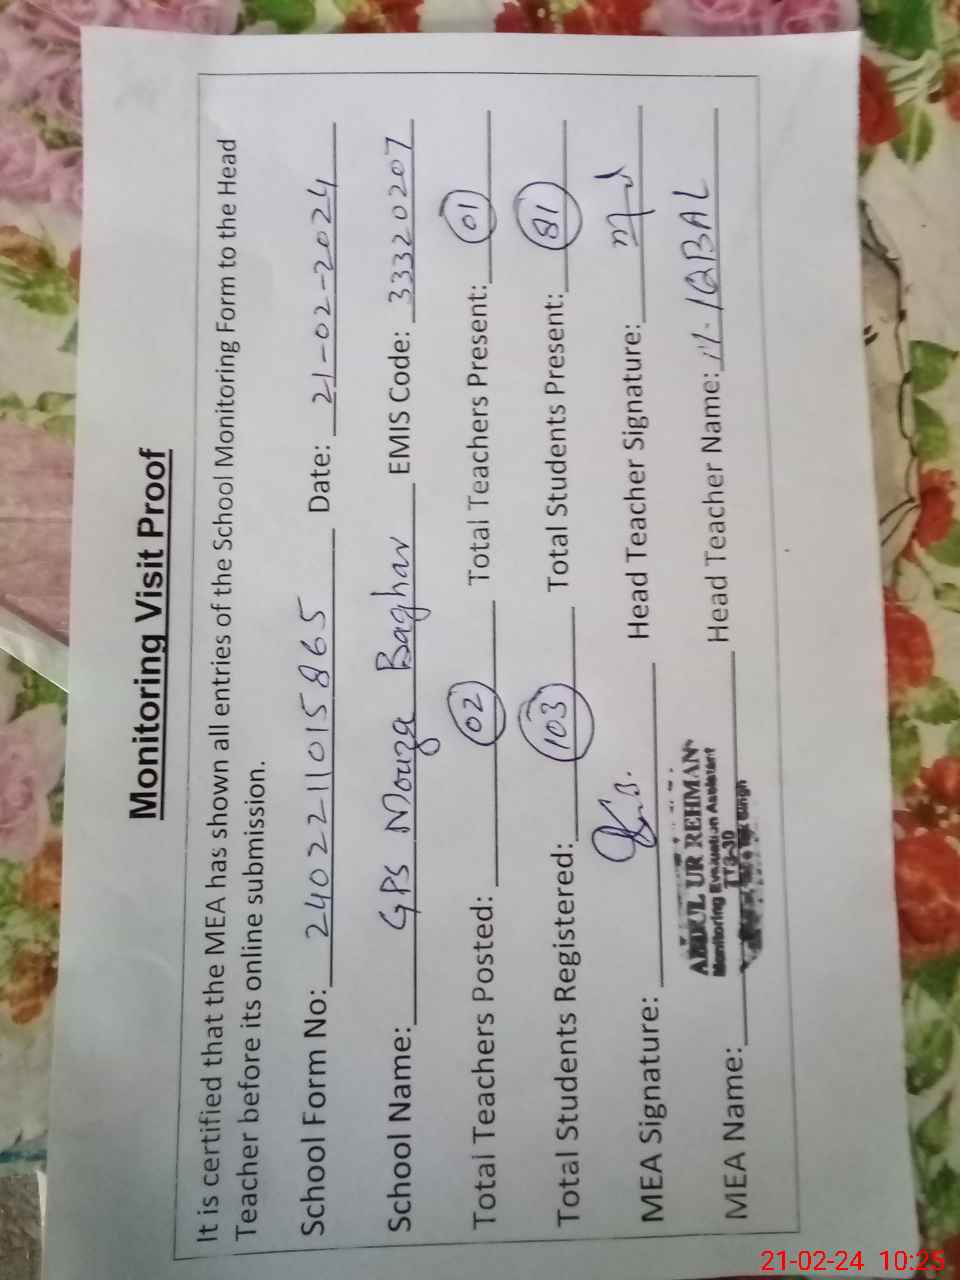 Monitoring Visit Proof
It is certified that the MEA has shown all entries of the School Monitoring Form to the Head
Teacher before its online submission.
School Form No: 2402211015865 Date: 21-02-2024
School Name: GPS Mouza Baghar EMIS Code: 33320207
Total Teachers Posted: 02 Total Teachers Present: 01
Total Students Registered: 103 Total Students Present: 81
MEA Signature: Head Teacher Signature:
ABDUL UR REHMAN
Monitoring Evaluation Assistant
MEA Name: Head Teacher Name: M. IQBAL
21-02-24 10:25